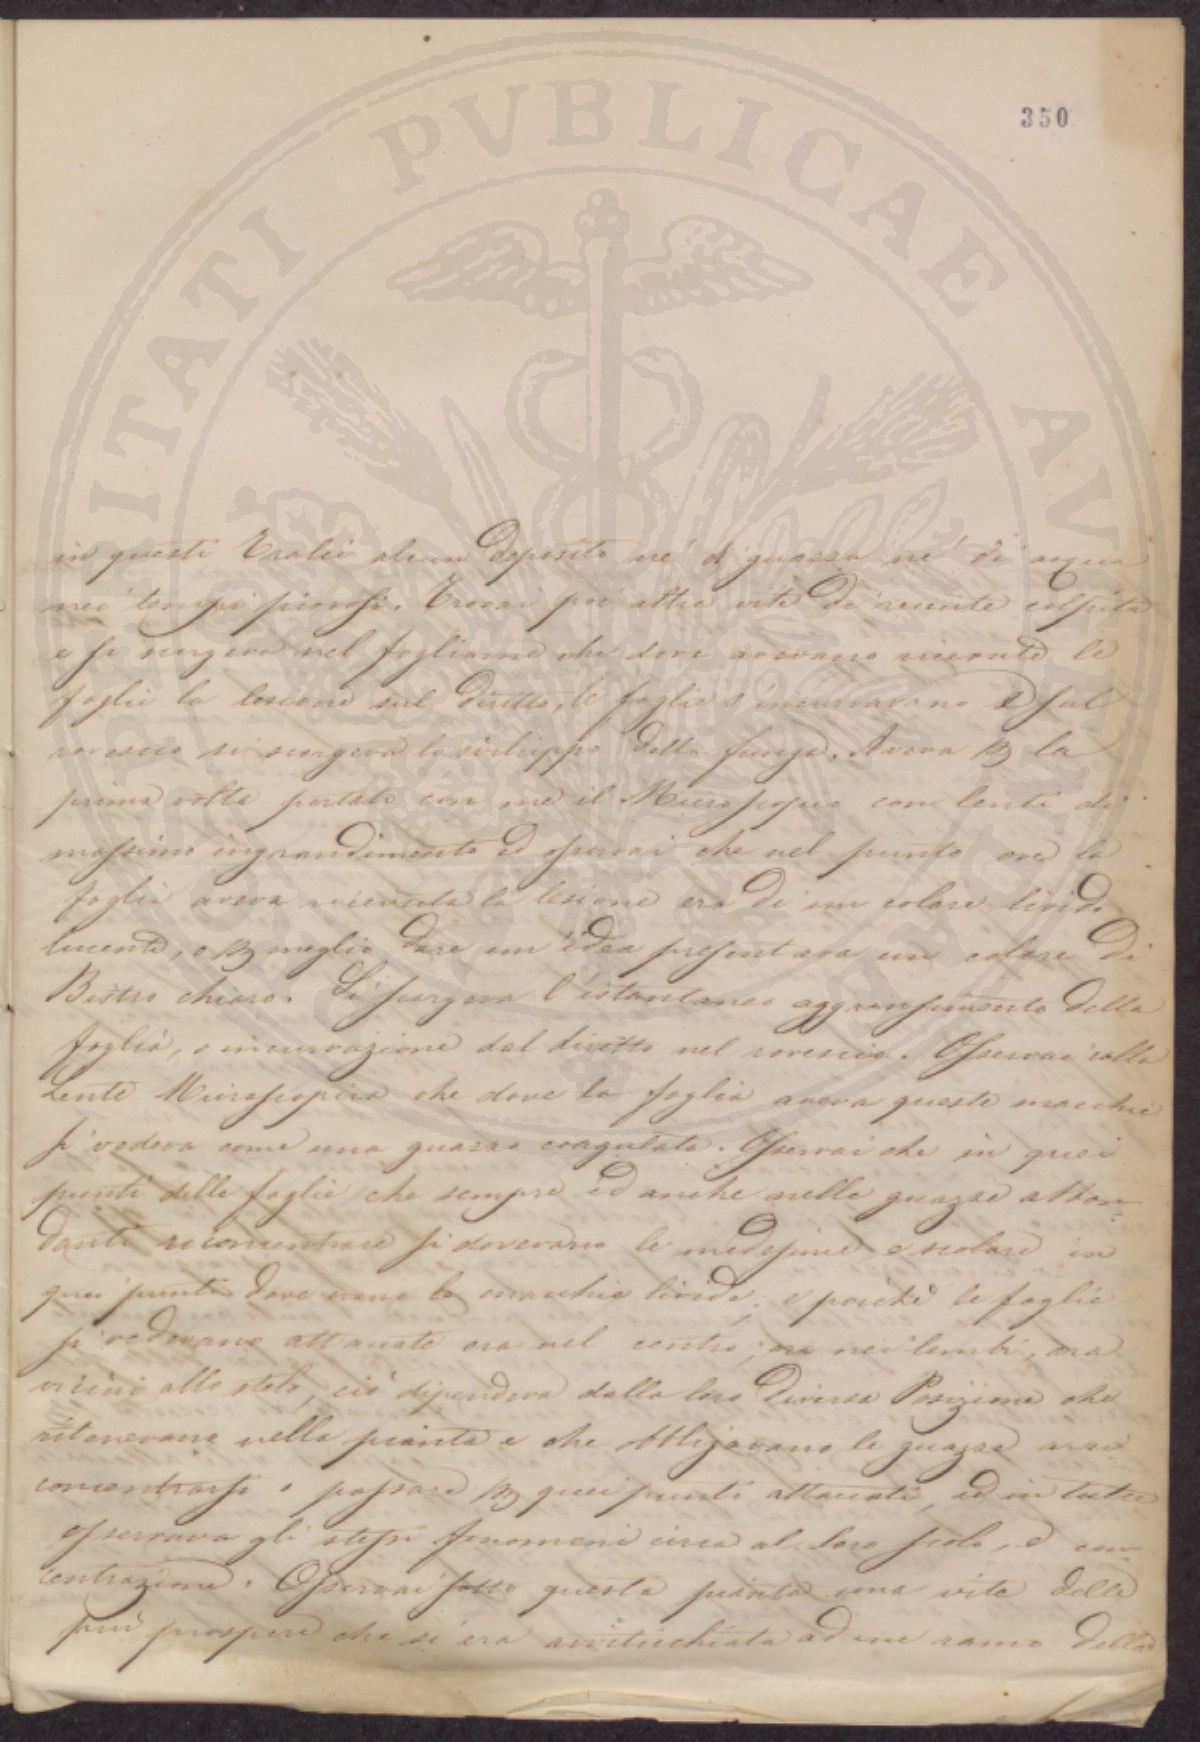 350
in questi Tralci alcun deposito nè di guazza nè di acqua
nei tempi piovosi. Trovai poi altra vite di recente colpita
e si scorgeva nel fogliame che dove avevano ricevuto le
foglie la lesione sul diritto, le foglie s'incurvavano e sul
rovescio si scorgeva lo sviluppo della funga. Aveva p la
prima volta portato con me il Microscopio con lenti di
massimo ingrandimento ed osservai che nel punto ove la
foglia aveva ricevuta la lesione era di un colore livido
lucente, o p meglio dare un'idea presentava un colore di
Bistro chiaro. Si scorgeva l'istantaneo aggrinsimento della
foglia, o incurvazione dal diritto nel rovescio. Osservai colla
Lente Microscopica che dove la foglia aveva queste macchie
si vedeva come una guazza coagulata. Osservai che in quei
punti delle foglie che sempre ed anche nelle guazze abbon=
danti riconcentrare si dovevano le medesime e scolare in
quei punti dove erano le macchie livide, e poichè le foglie
si vedevano attaccate ora nel centro, ora nei lembi, ora
vicini allo stelo, ciò dipendeva dalla loro diversa Posizione che
ritenevano nella pianta e che obbligavano le guazze a
concentrarsi o passare p quei punti attaccati, ed in tutte
osservava gli stessi fenomeni circa al loro scolo, e con=
centrazione. Osservai sotto questa pianta una vite delle
più prospere che si era avviticchiata ad un ramo della